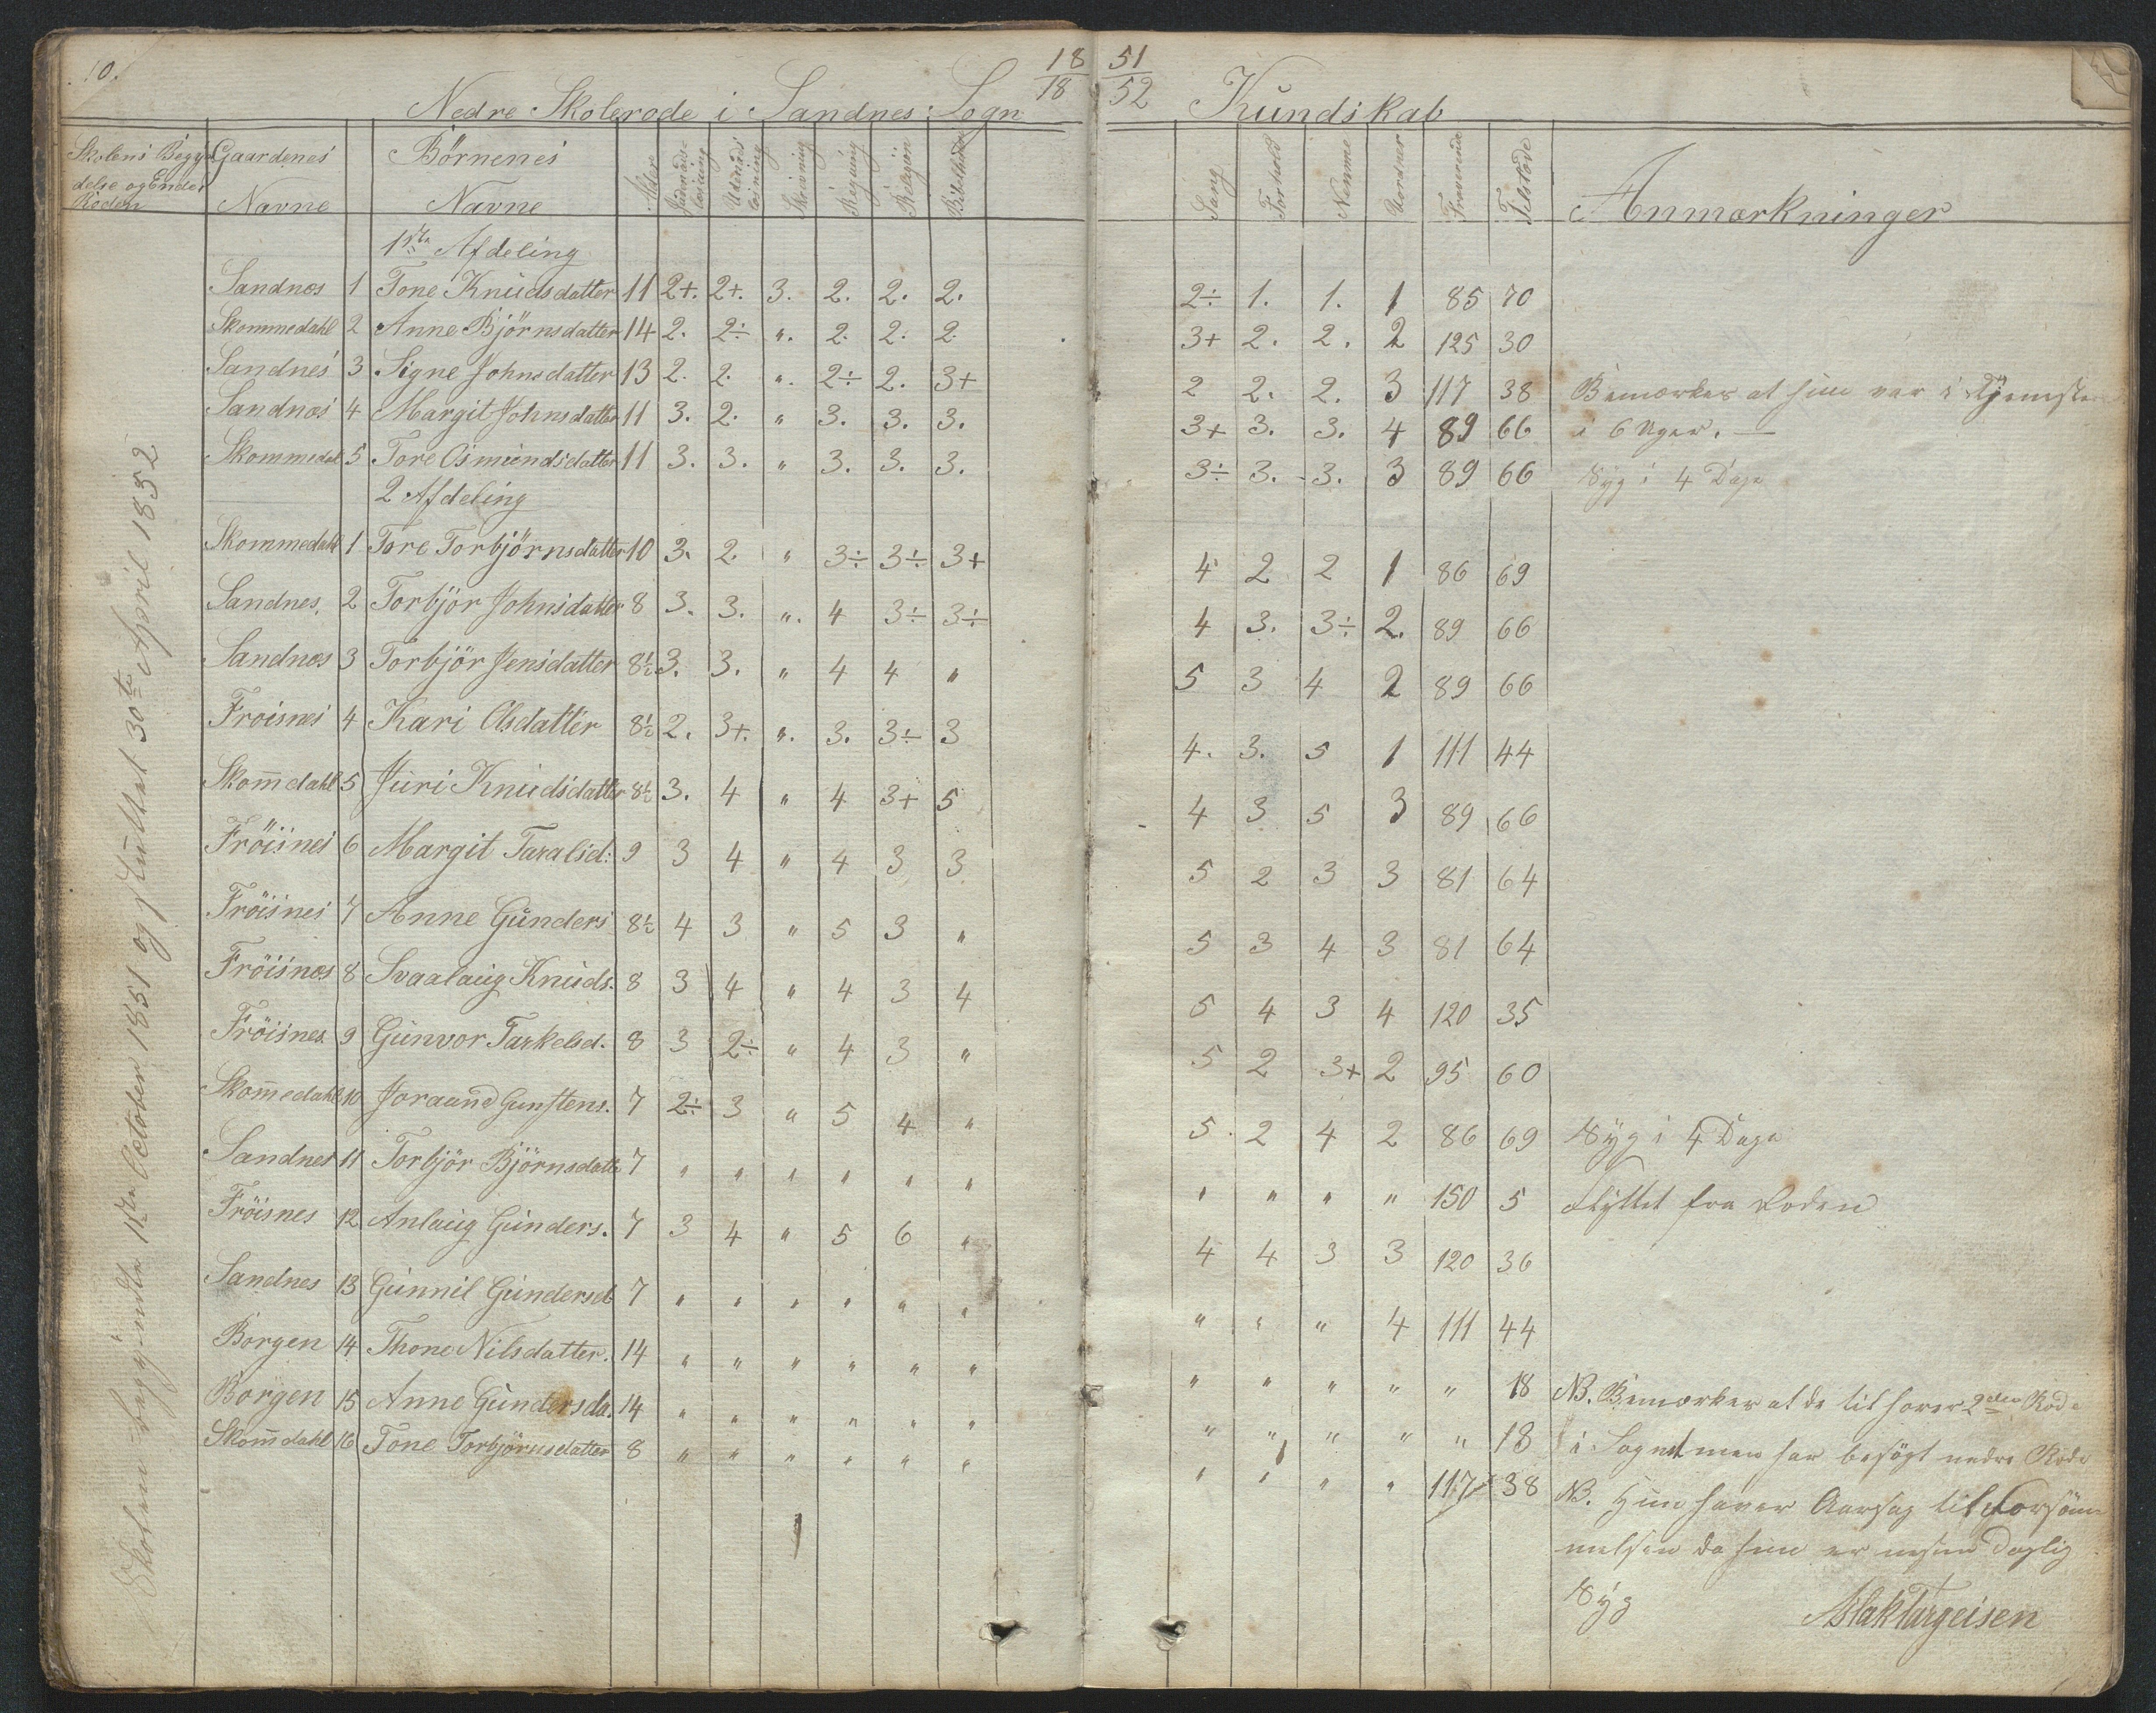 10.
18 51
18 52
Nedre Skolerode i Sandnes: Sogn Kundskab
Skolens Begyn Gaardenes Börnenes Alder Indenads- Udenads Skrivning Regning Religion Bibelhistorie Sang Forhold Nemme Uordner Fraverende Tilstede Anmærkninger
delse og Ende i læsning læsning
Roden Navne Navne
1ste Afdeling
Sandnæs 1 Tone Knudsdatter 11 2+. 2+. 3. 2. 2. 2. 2÷ 1. 1. 1 85 70
Skommedahl 2 Anne Björnsdatter 14 2. 2÷ ". 2. 2. 2. 3+ 2. 2. 2 125 30
Sandnes 3 Signe Johnsdatter 13 2. 2. ". 2÷ 2. 3+ 2 2. 2. 3 117 38 Bemærkes at hun var i Tjeniste
Sandnæs 4 Margit Johnsdatter 11 3. 2. " 3. 3. 3. 3+ 3. 3. 4 89 66 i 6 Uger. —
Skommedal 5 Tore Osmundsdatter 11 3. 3. " 3. 3. 3. 3÷ 3. 3. 3 89 66 Syg i 4 Dage
2 Afdeling
Skommedahl 1 Tore Torbjörnsdatter 10 3. 2. " 3÷ 3÷ 3+ 4 2 2 1 86 69
Sandnes, 2 Torbjör Johnsdatter 8 3. 3. ". 4 3÷ 3÷ 4 3. 3÷ 2. 89 66
Sandnæs 3 Torbjör Jensdatter 8½ 3. 3. " 4 4 " 5 3 4 2 89 66
Froisnes 4 Kari Olsdatter 8½ 2. 3+. ". 3. 3÷ 3 4. 3. 5 1 111 44
Skom̅dahl 5 Juri Knudsdatter 8½ 3. 4 " 4 3+ 5 4 3 5 3 89 66
Fröisnes 6 Margit Taralsd: 9 3 4 " 4 3 3 5 2 3 3 81 64
Fröisnes 7 Anne Gunders 8½ 4 3 " 5 3 " 5 3 4 3 81 64
Fröisnæs 8 Svaalaug Knuds. 8 3 4 " 4 3 4 5 4 3 4 120 35
Fröisnes 9 Gunvor Tarkelsd. 8 3 2÷ " 4 3 " 5 2 3+ 2 95 60
Skom̅edahl 10 Joraand Gunstens. 7 2÷ 3 " 5 4 " 5 2 4 2 86 69 Syg i 4 Dage
Sandnes 11 Torbjör Björnsdatt 7 " " " " " " " " " " 150 5 Flyttet fra Roden
Fröisnes 12 Anlaug Gunders. 7 3 4 " 5 6 " 4 4 3 3 120 36
Sandnes 13 Gunnil Gundersd 7 " " " " " " " " " 4 111 44
Borgen 14 Thone Nilsdatter. 14 " " " " " " " " " " " 18 NB. Bemærkes at de tilhører 2den Rode
Borgen 15 Anne Gundersda. 14 " " " " " " " " " " " 18 i Sognet men har besögt nedre Rode
Skom̅dahl 16 Tone Torbjörnsdatter 8 " " " " " " " " " " 117 38 NB. Hun haver Aarsag til Forsöm-
melsen da hun er nesten daglig
Syg Aslak Targeisen
Skolen begyndte 11te October 1851 og sluttet 30te April 1852